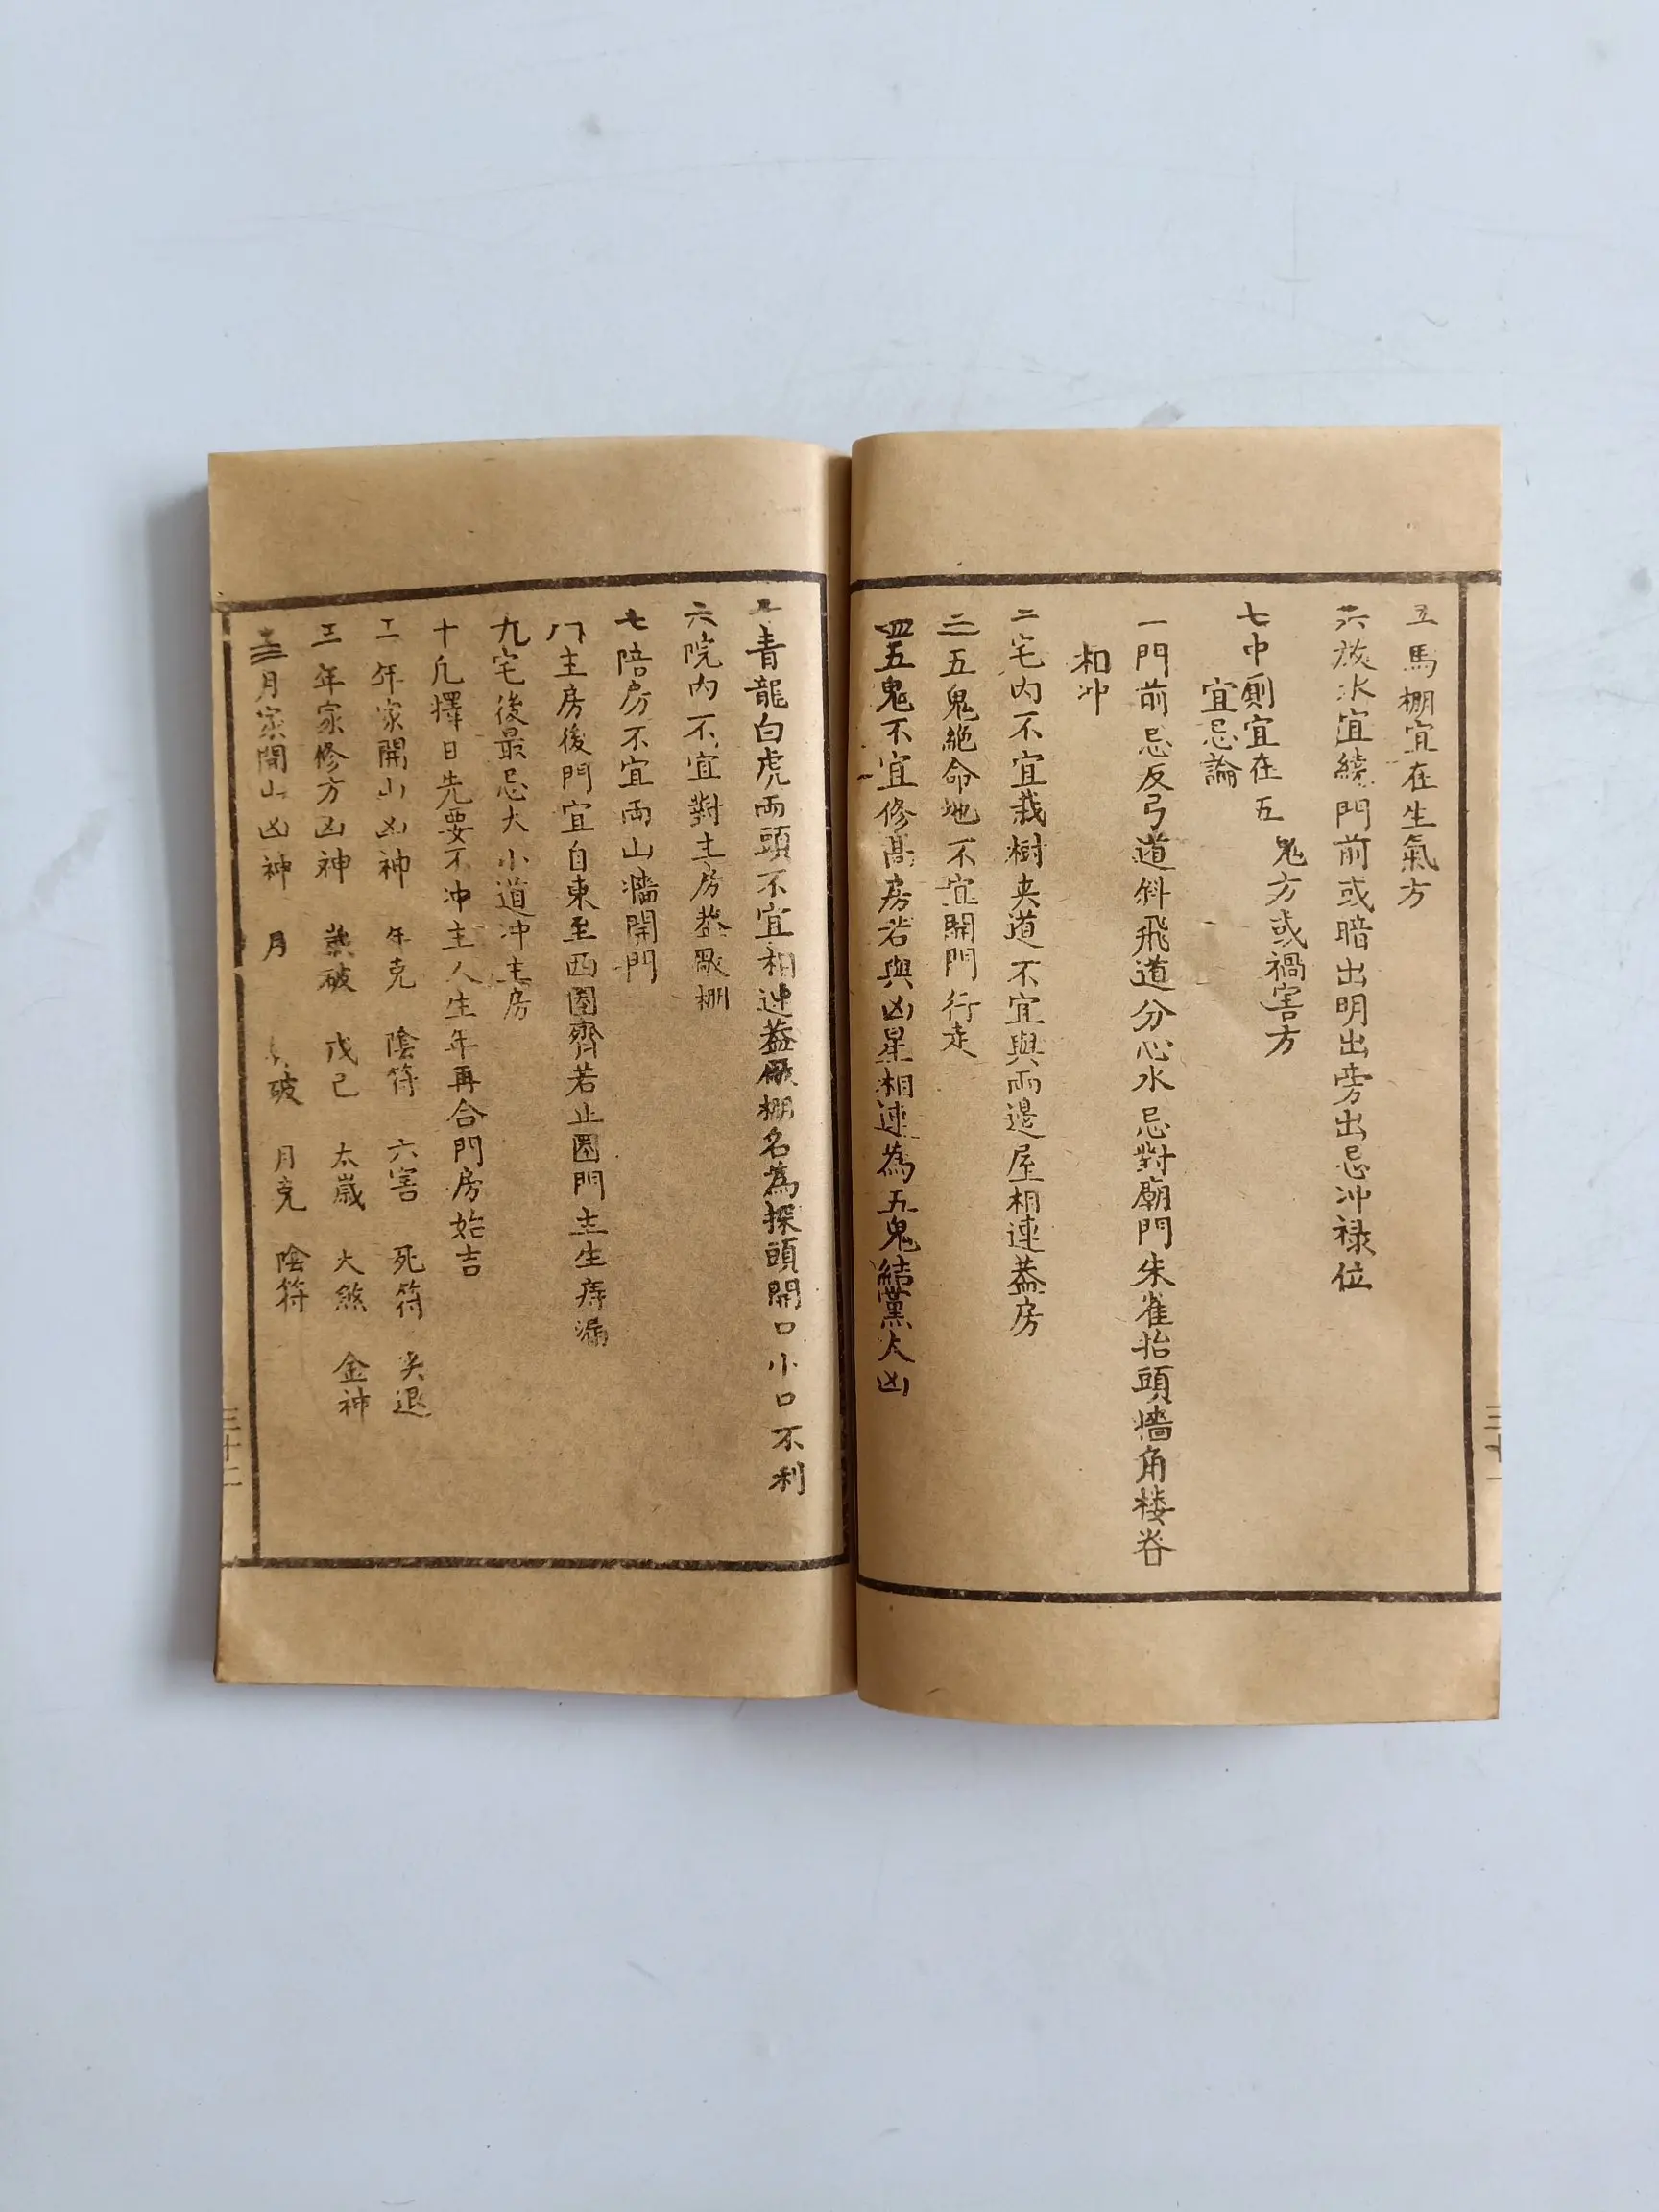 五馬棚宜在生氣方
六放水宜繞門前或暗出明出旁出忌冲禄位
七中厠宜在五鬼方或禍害方
宜忌論
一門前忌反弓道斜飛道分心水忌對廟門朱雀抬頭墻角楼脊
相冲
二宅内不宜栽樹夹道不宜與両邉屋相連蓋房
三五鬼絶命地不宜開門行走
四五鬼不宜修髙房若與凶星相連為五鬼結黨大凶
三十一
五青龍白虎両頭不宜相連蓋厰棚名為探頭開口小口不利
六院内不宜對主房蓋厰棚
七陪房不宜両山墻開門
八主房後門宜自東至西圈齊若止圈門主生痔漏
九宅後最忌大小道冲主房
十凡擇日先要不冲主人生年再合門房始吉
十一年家開山凶神 年克 陰符 六害 死符 灸退
十二年家修方凶神 歲破 戊己 太歲 大煞 金神
十三月家開山凶神 月 破 月克 陰符
三十二